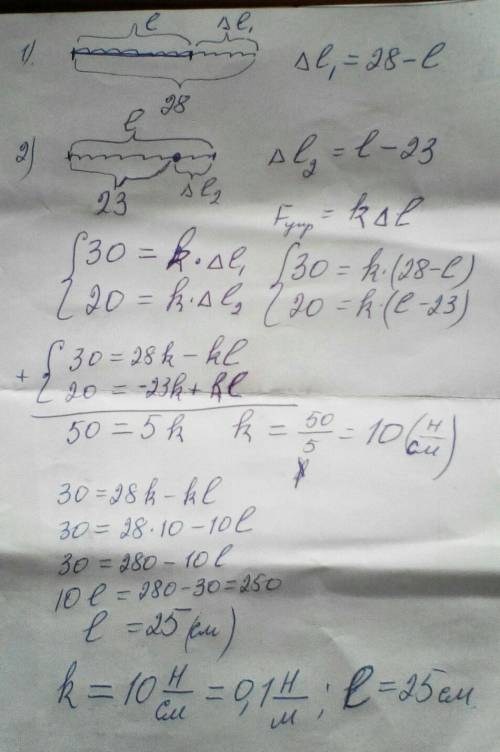 1) l Δl₁
28
Δl₁ = 28 - l
2) l
23 Δl₂
Δl₂ = l - 23
Fупр = kΔl
{ 30 = k·Δl₁
20 = k·Δl₂
{ 30 = k·(28-l)
20 = k·(l-23)
+ { 30 = 28k - kl
20 = -23k + kl
50 = 5k k = 50/5 = 10 (н/см)
30 = 28k - kl
30 = 28·10 - 10l
30 = 280 - 10l
10l = 280 - 30 = 250
l = 25 (см)
k = 10 н/см = 0,1 н/м ; l = 25 см